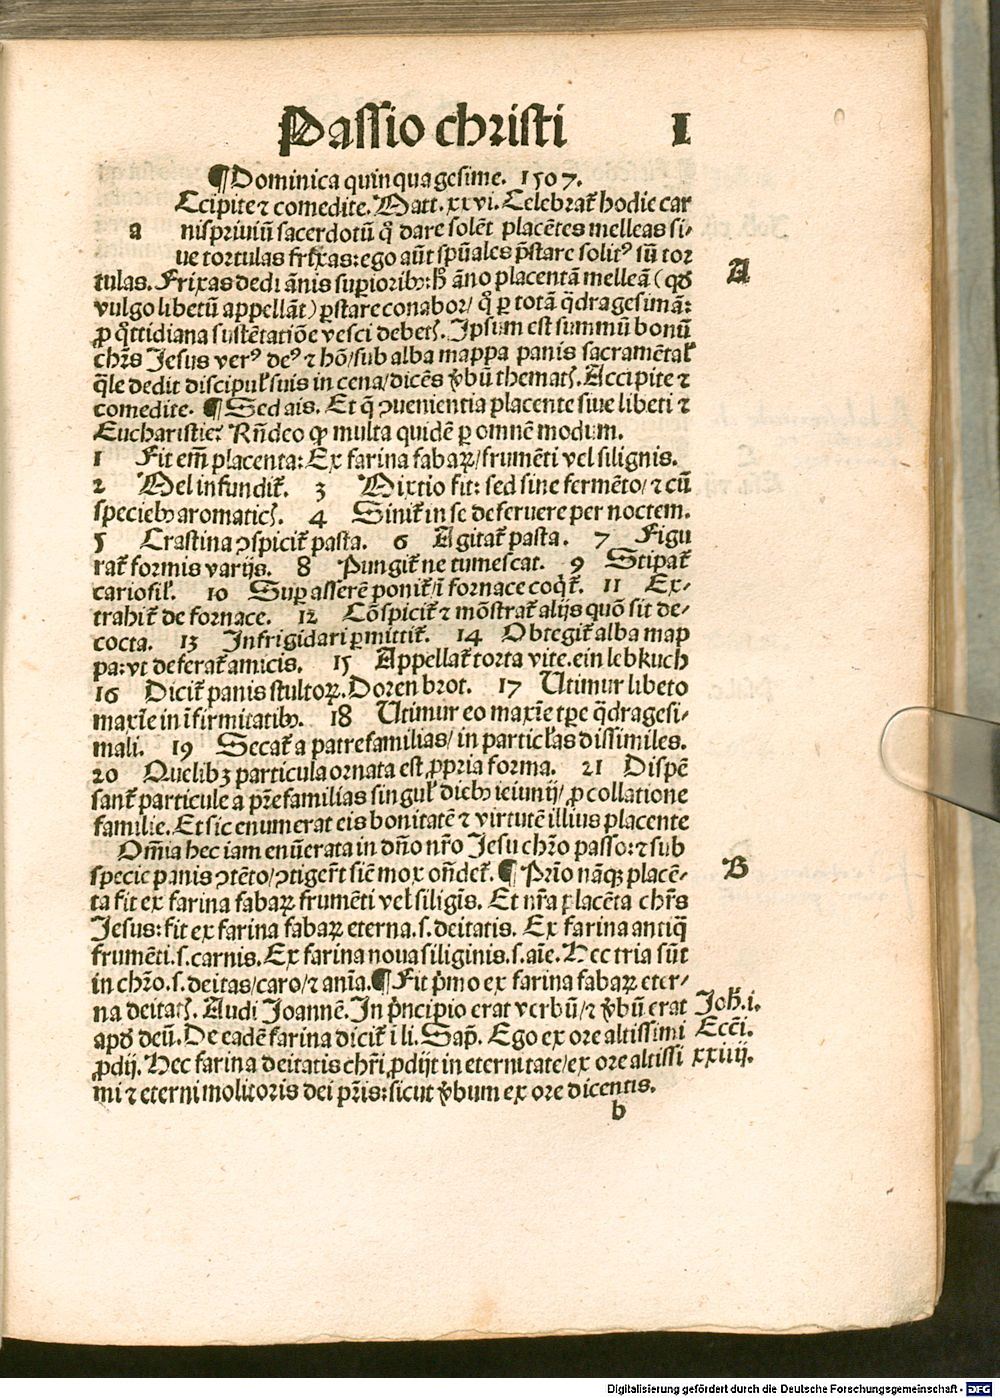 Passio christi I
¶Dominica quinquagesime. 1507.
Ccipite ⁊ comedite. Matt. xxvi. Celebrat᷑ hodie car
a nispriuiū sacerdotū qͥ dare solēt placētes melleas si-
ue tortulas frixas: ego aūt spūales p̄stare solitꝰ sū tor
tulas. Frixas dedi ānis superioribꝰ: hͦ āno placentā melleā (qđ A
vulgo libetū appellāt) p̱stare conabor/ qͣ p̱ totā q̄dragesimā:
ꝓ qͦttidiana sustētatiōe vesci debetꝭ. Ipsum est summū bonū
chr̄s Jesus verꝰ deꝰ ⁊ hō/ sub alba mappa panis sacramētal̓
q̄le dedit discipul̓ suis in cena/ dicēs v̓bū thematꝭ. Accipite ⁊
comedite. ¶Sed ais. Et q̄ ꝯuenientia placente siue libeti ⁊
Eucharistie? Rn̄deo ꝙ multa quidē p̱ omnem modum.
1 Fit em̄ placenta: Ex farina fabaꝝ/ frumēti vel silignis.
2 Mel infundit᷑. 3 Mixtio fit: sed sine fermēto/ ⁊ cū
speciebꝰ aromaticꝭ. 4 Sinit᷑ in se deferuere per noctem.
5 Crastina ꝯspicit᷑ pasta. 6 Agitat᷑ pasta. 7 Figu
rat᷑ formis varijs. 8 Pungit᷑ ne tumescat. 9 Stipat᷑
cariofil̓. 10 Suꝑ asserē ponit᷑/ ī fornace coqͥt᷑. 11 Ex-
trahit᷑ de fornace. 12 Cōspicit᷑ ⁊ mōstrat᷑ alijs quō sit de-
cocta. 13 Infrigidari p̱mittit᷑. 14 Obtegit᷑ alba map
pa: vt deferat᷑ amicis. 15 Appellat᷑ torta vite. ein lebkuch
16 Dicit᷑ panis stultoꝝ. Doren brot. 17 Utimur libeto
maxīe in īfirmitatibꝰ. 18 Utimur eo maxīe tp̄e q̄dragesi-
mali. 19 Secat᷑ a patrefamilias/ in particl̓as dissimiles.
20 Quelibꝫ particula ornata est ꝓpria forma. 21 Dispē
sant᷑ particule a pr̄efamilias singul̓ diebꝰ ieiunij/ ꝓ collatione
familie. Et sic enumerat eis bonitatē ⁊ virtutē illius placente
Om̄ia hec iam enūerata in dn̄o nr̄o Jesu chr̄o passo: ⁊ sub
specie panis ꝯtēto/ ꝯtigert̄ siē mox on̄det᷑. ¶Prīo nāqꝫ placē- B
ta fit ex farina fabaꝝ frumēti vel siligis. Et nr̄a placēta chr̄s
Jesus: fit ex farina fabaꝝ eterna. s. deitatis. Ex farina antiq̄
frumēti. s. carnis. Ex farina noua siliginis. s. aīe. Hec tria sūt
in chr̄o. s. deitas/ caro/ ⁊ anīa. ¶Fit pͥmo ex farina fabaꝝ eter-
na deitatꝭ. Audi Joannē. In pͥncipio erat verbū/ ⁊ v̓bū erat Joh̄. i.
apđ deū. De eadē farina dicit᷑ i li. Sap̄. Ego ex ore altissimi Ecci.
ꝓdij. Hec farina deitatis chr̄i ꝓdijt in eternitate/ ex ore altissi xxiiij.
mi ⁊ eterni molitoris dei pr̄is: sicut v̓bum ex ore dicentis.
b
Digitalisierung gefördert durch die Deutsche Forschungsgemeinschaft - DFG